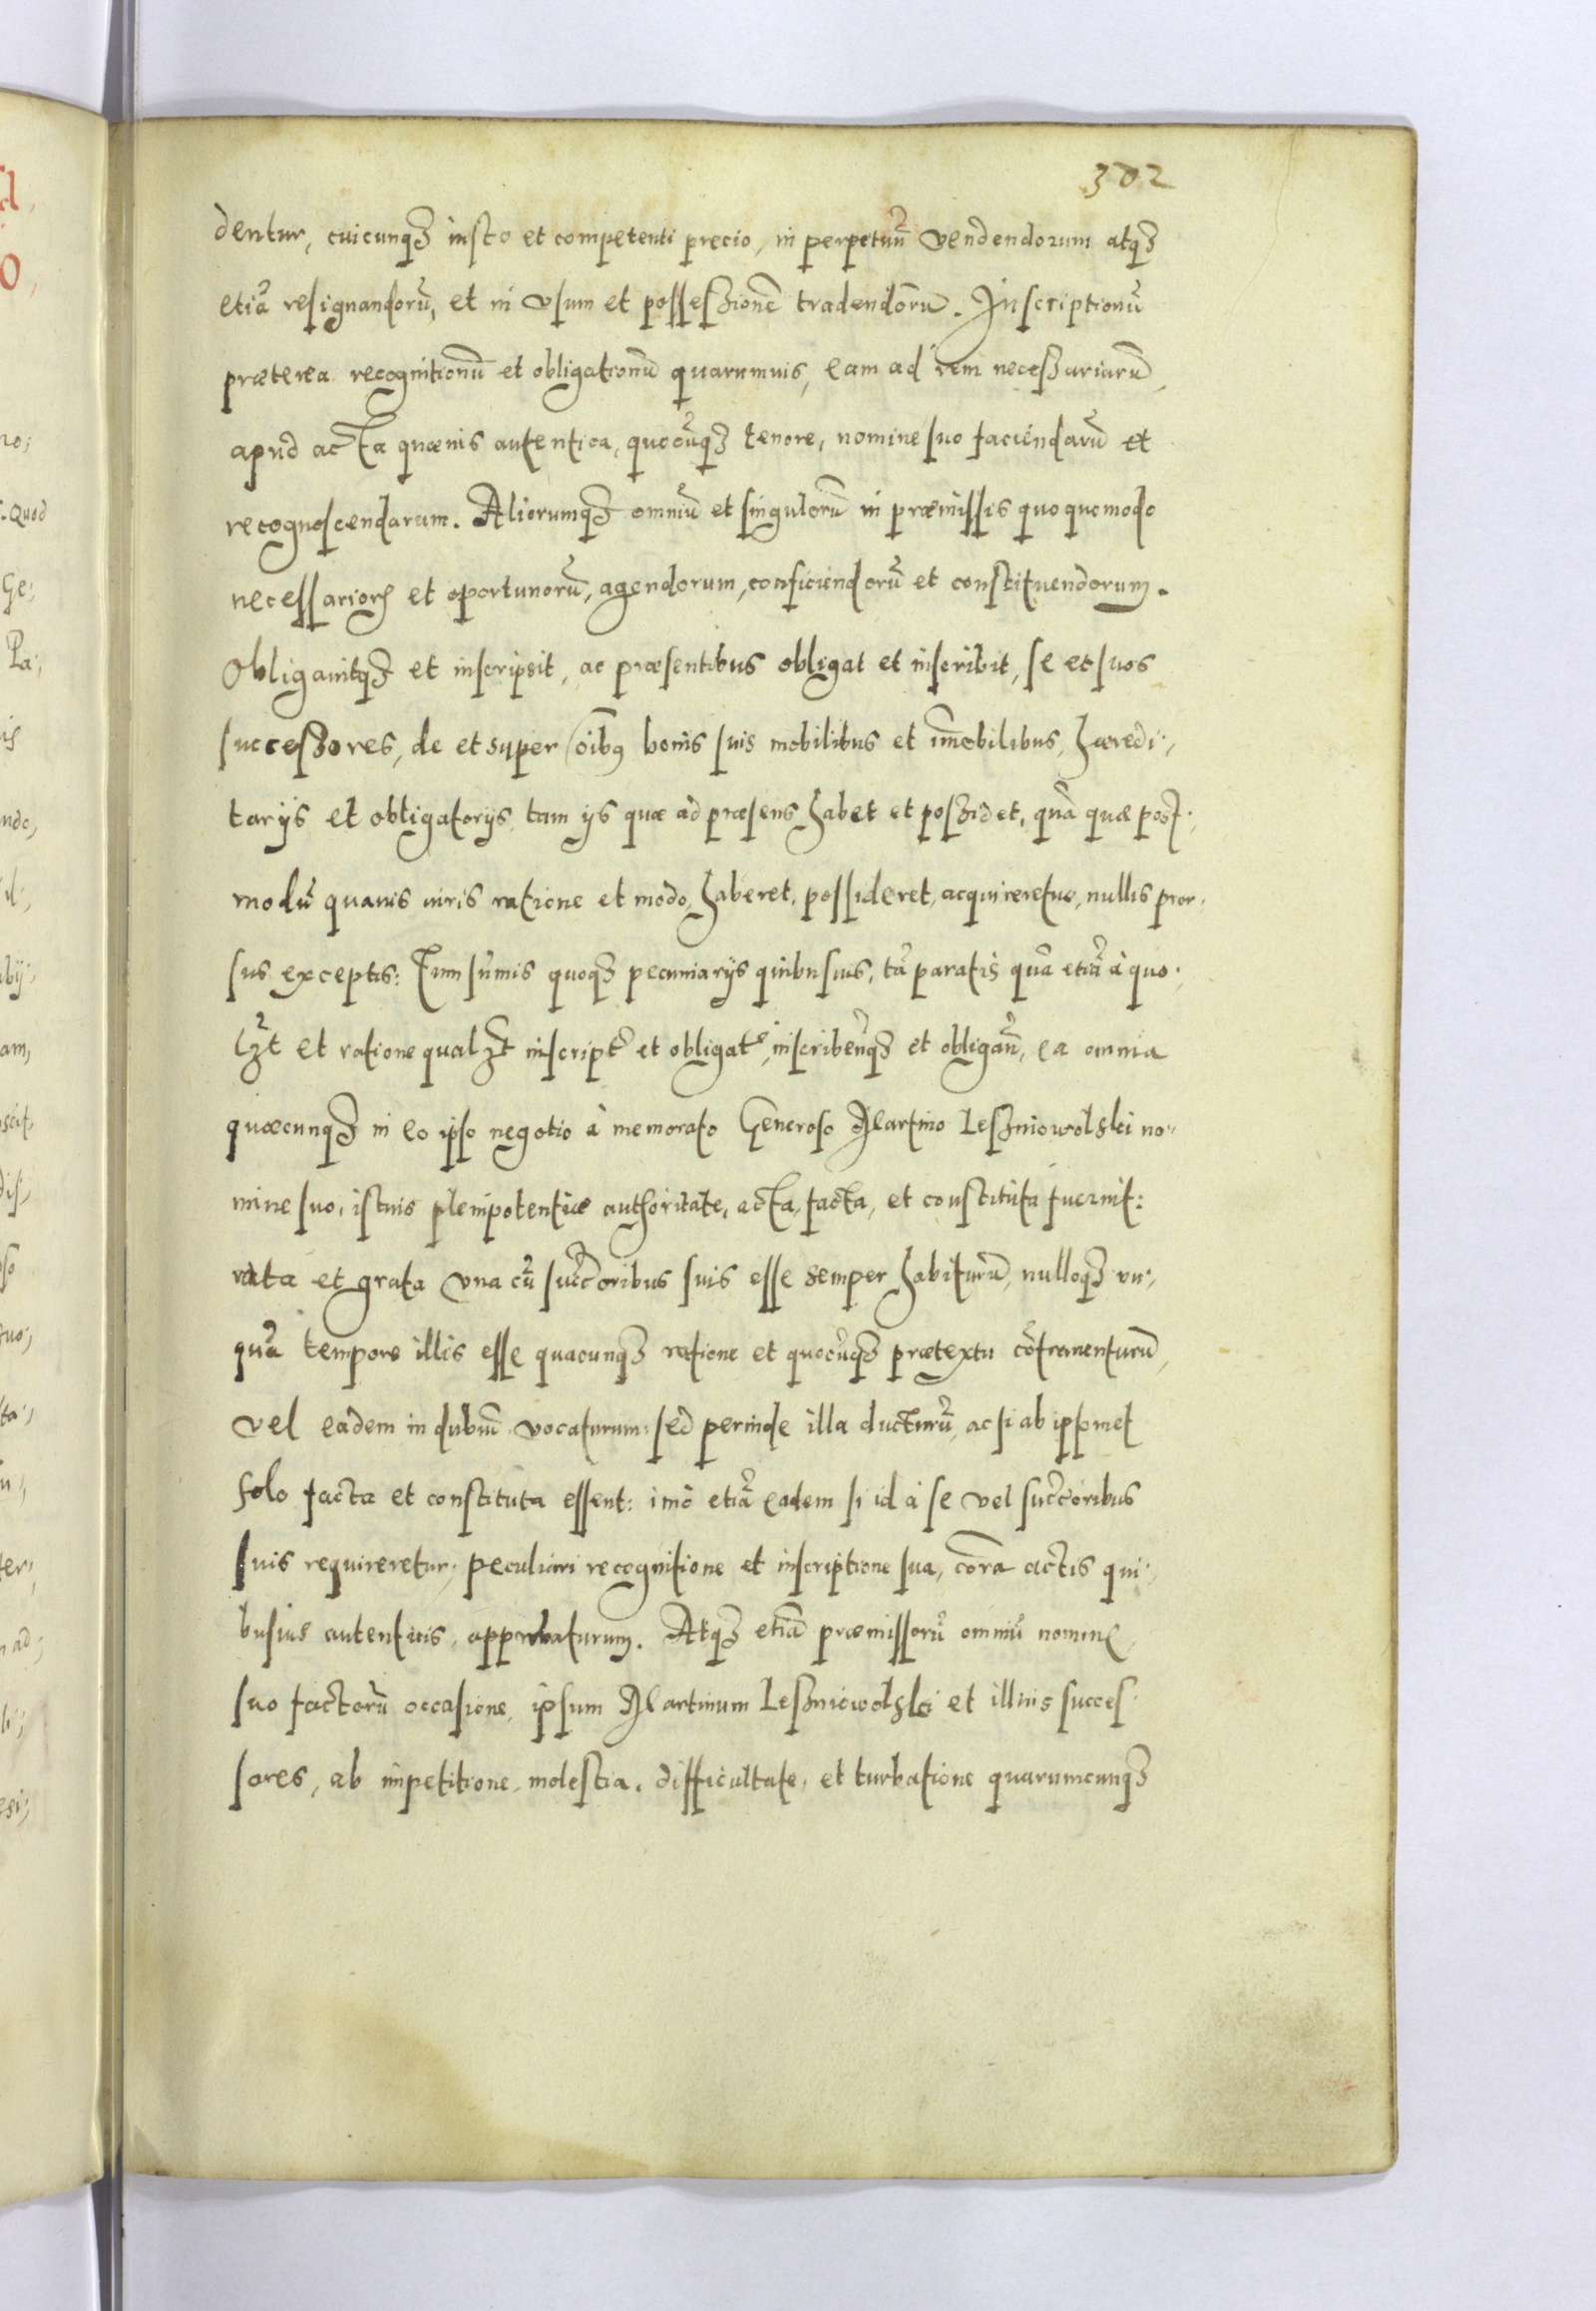 302
dentur, cuicunqꝫ iusto et competenti precio, in perpetuũ vendendorum atqꝫ
etiã resignandorũ, et in vsum et possessionẽ tradendorũ. Inscriptionũ
præterea recognitionũ et obligationũ quarumuis, eam ad rem necessariarũ,
apud acta quæuis autentica, quocũqꝫ tenore, nomine suo faciendarũ et
recognoscendarum. Aliorumqꝫ omniũ et singulorũ in præmissis quoquomodo
necessarioꝝ et oportunorũ, agendorum, conficiendorũ et constituendorum.
Obligauitqꝫ et inscripsit, ac præsentibus obligat et inscribit, se et suos
successores, de et super oĩbꝫ bonis suis mobilibus et im̃obilibus, hæredi-
tarijs et obligatorijs, tam ijs quæ ad præsens habet et possidet, quã quæ post-
modũ quauis iuris ratione et modo, haberet, possideret, acquireretue, nullis pror-
sus exceptis: Tum sum̃is quoqꝫ pecuniarijs quibusuis, tã paratis quã etiã à quo-
lꝫt et ratione qualꝫt inscript̃ et obligat̃, inscribeñqꝫ et obligañ, ea omnia
quæcunqꝫ in eo ipso negotio à memorato Generoso Martino Lesniowolski no-
mine suo, istius plenipotentiæ authoritate, acta, facta, et constituta fuerint:
rata et grata vna cũ succ̃oribus suis esse semper habiturũ, nulloqꝫ vn-
quã tempore illis esse quacunqꝫ ratione et quocũqꝫ prætextu cõtrauenturũ,
vel eadem in dubiũ vocaturum: sed perinde illa ducturũ, ac si ab ipsomet
solo facta et constituta essent: imò etiã eadem si id à se vel succ̃oribus
suis requireretur, peculiari recognitione et inscriptione sua, corã actis qui-
busuis autenticis, approbaturum. Atqꝫ etiã præmissorũ omniũ nomine
suo factorũ occasione, ipsum Martinum Lesniowolski et illius succes-
sores, ab impetitione, molestia, difficultate, et turbatione quarumcunqꝫ